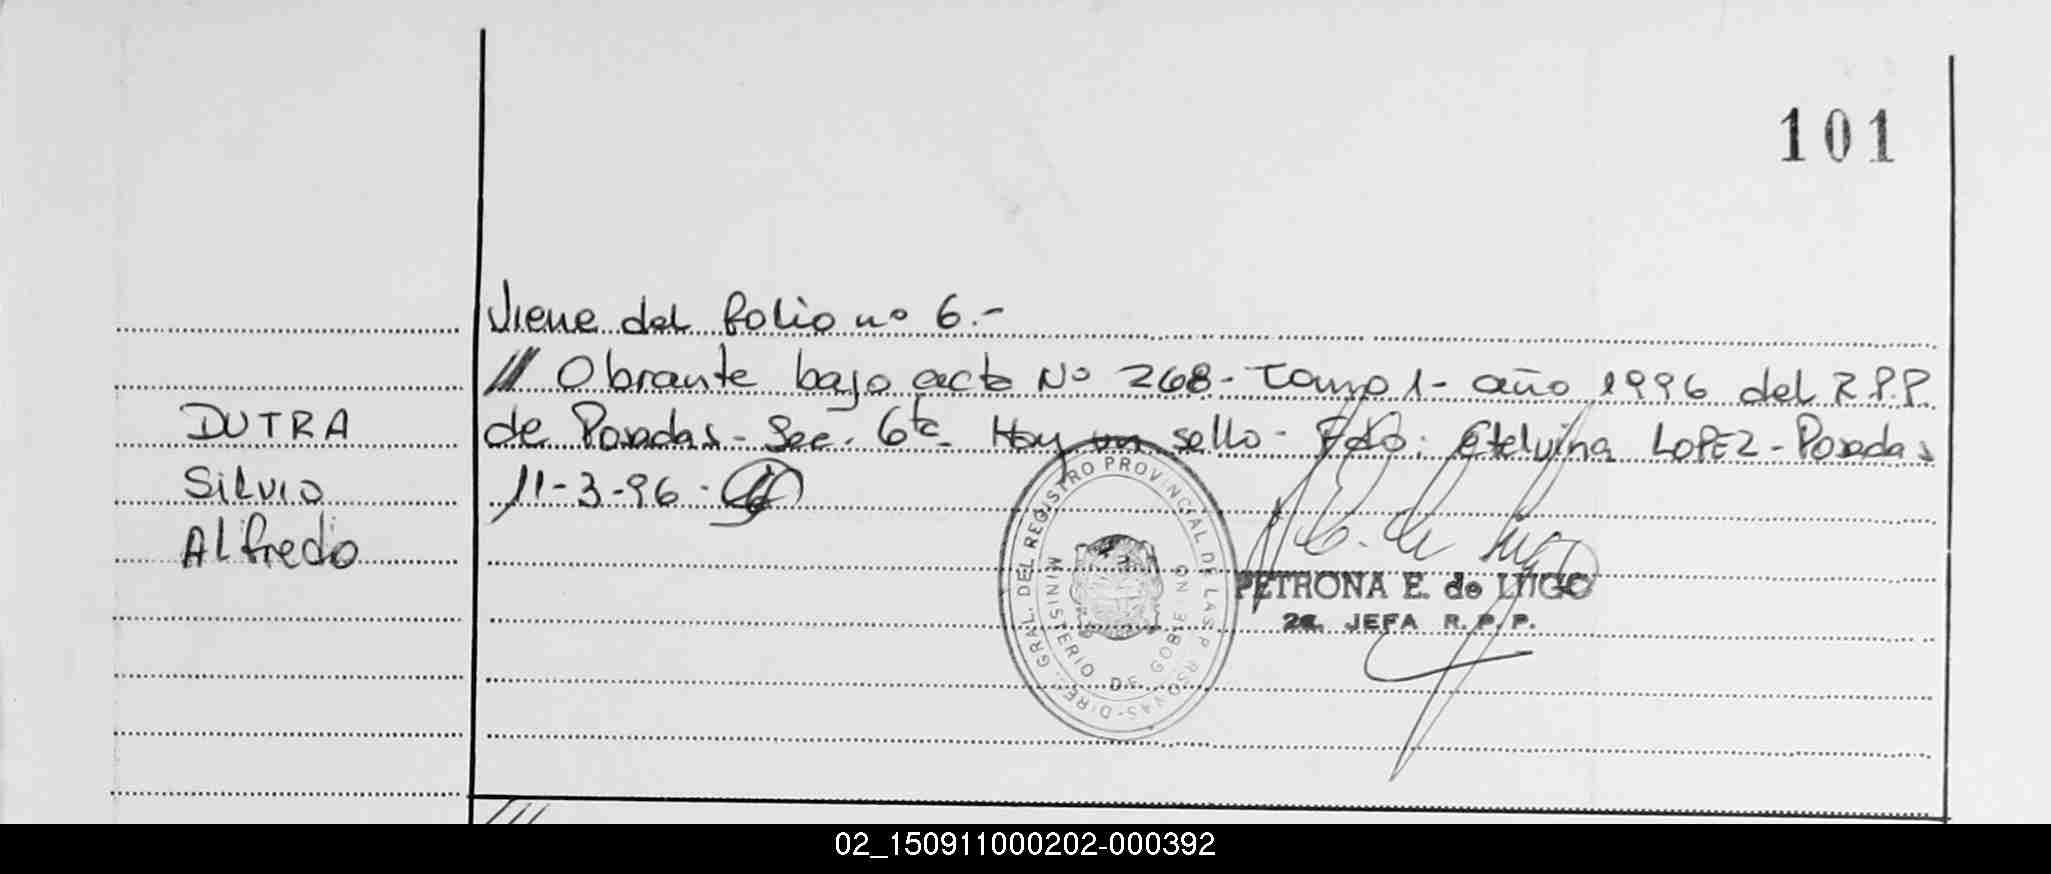 101
Viene del folio nº 6.-
/// Obrante bajo acta Nº 268- Tomo 1- año 1996 del R.P.P.
DUTRA de Posadas- Sec. 6ta- Hay un sello- Fdo: Etelvina LOPEZ-Posadas
Silvio 11-3-96.
Alfredo
DIREC. GRAL. DEL REGISTRO PROVINCIAL DE LAS P RSONAS
MINISTERIO DE GOBIERNO
PETRONA E. de LUGO
2a. JEFA R. P. P.
///
02_150911000202-000392